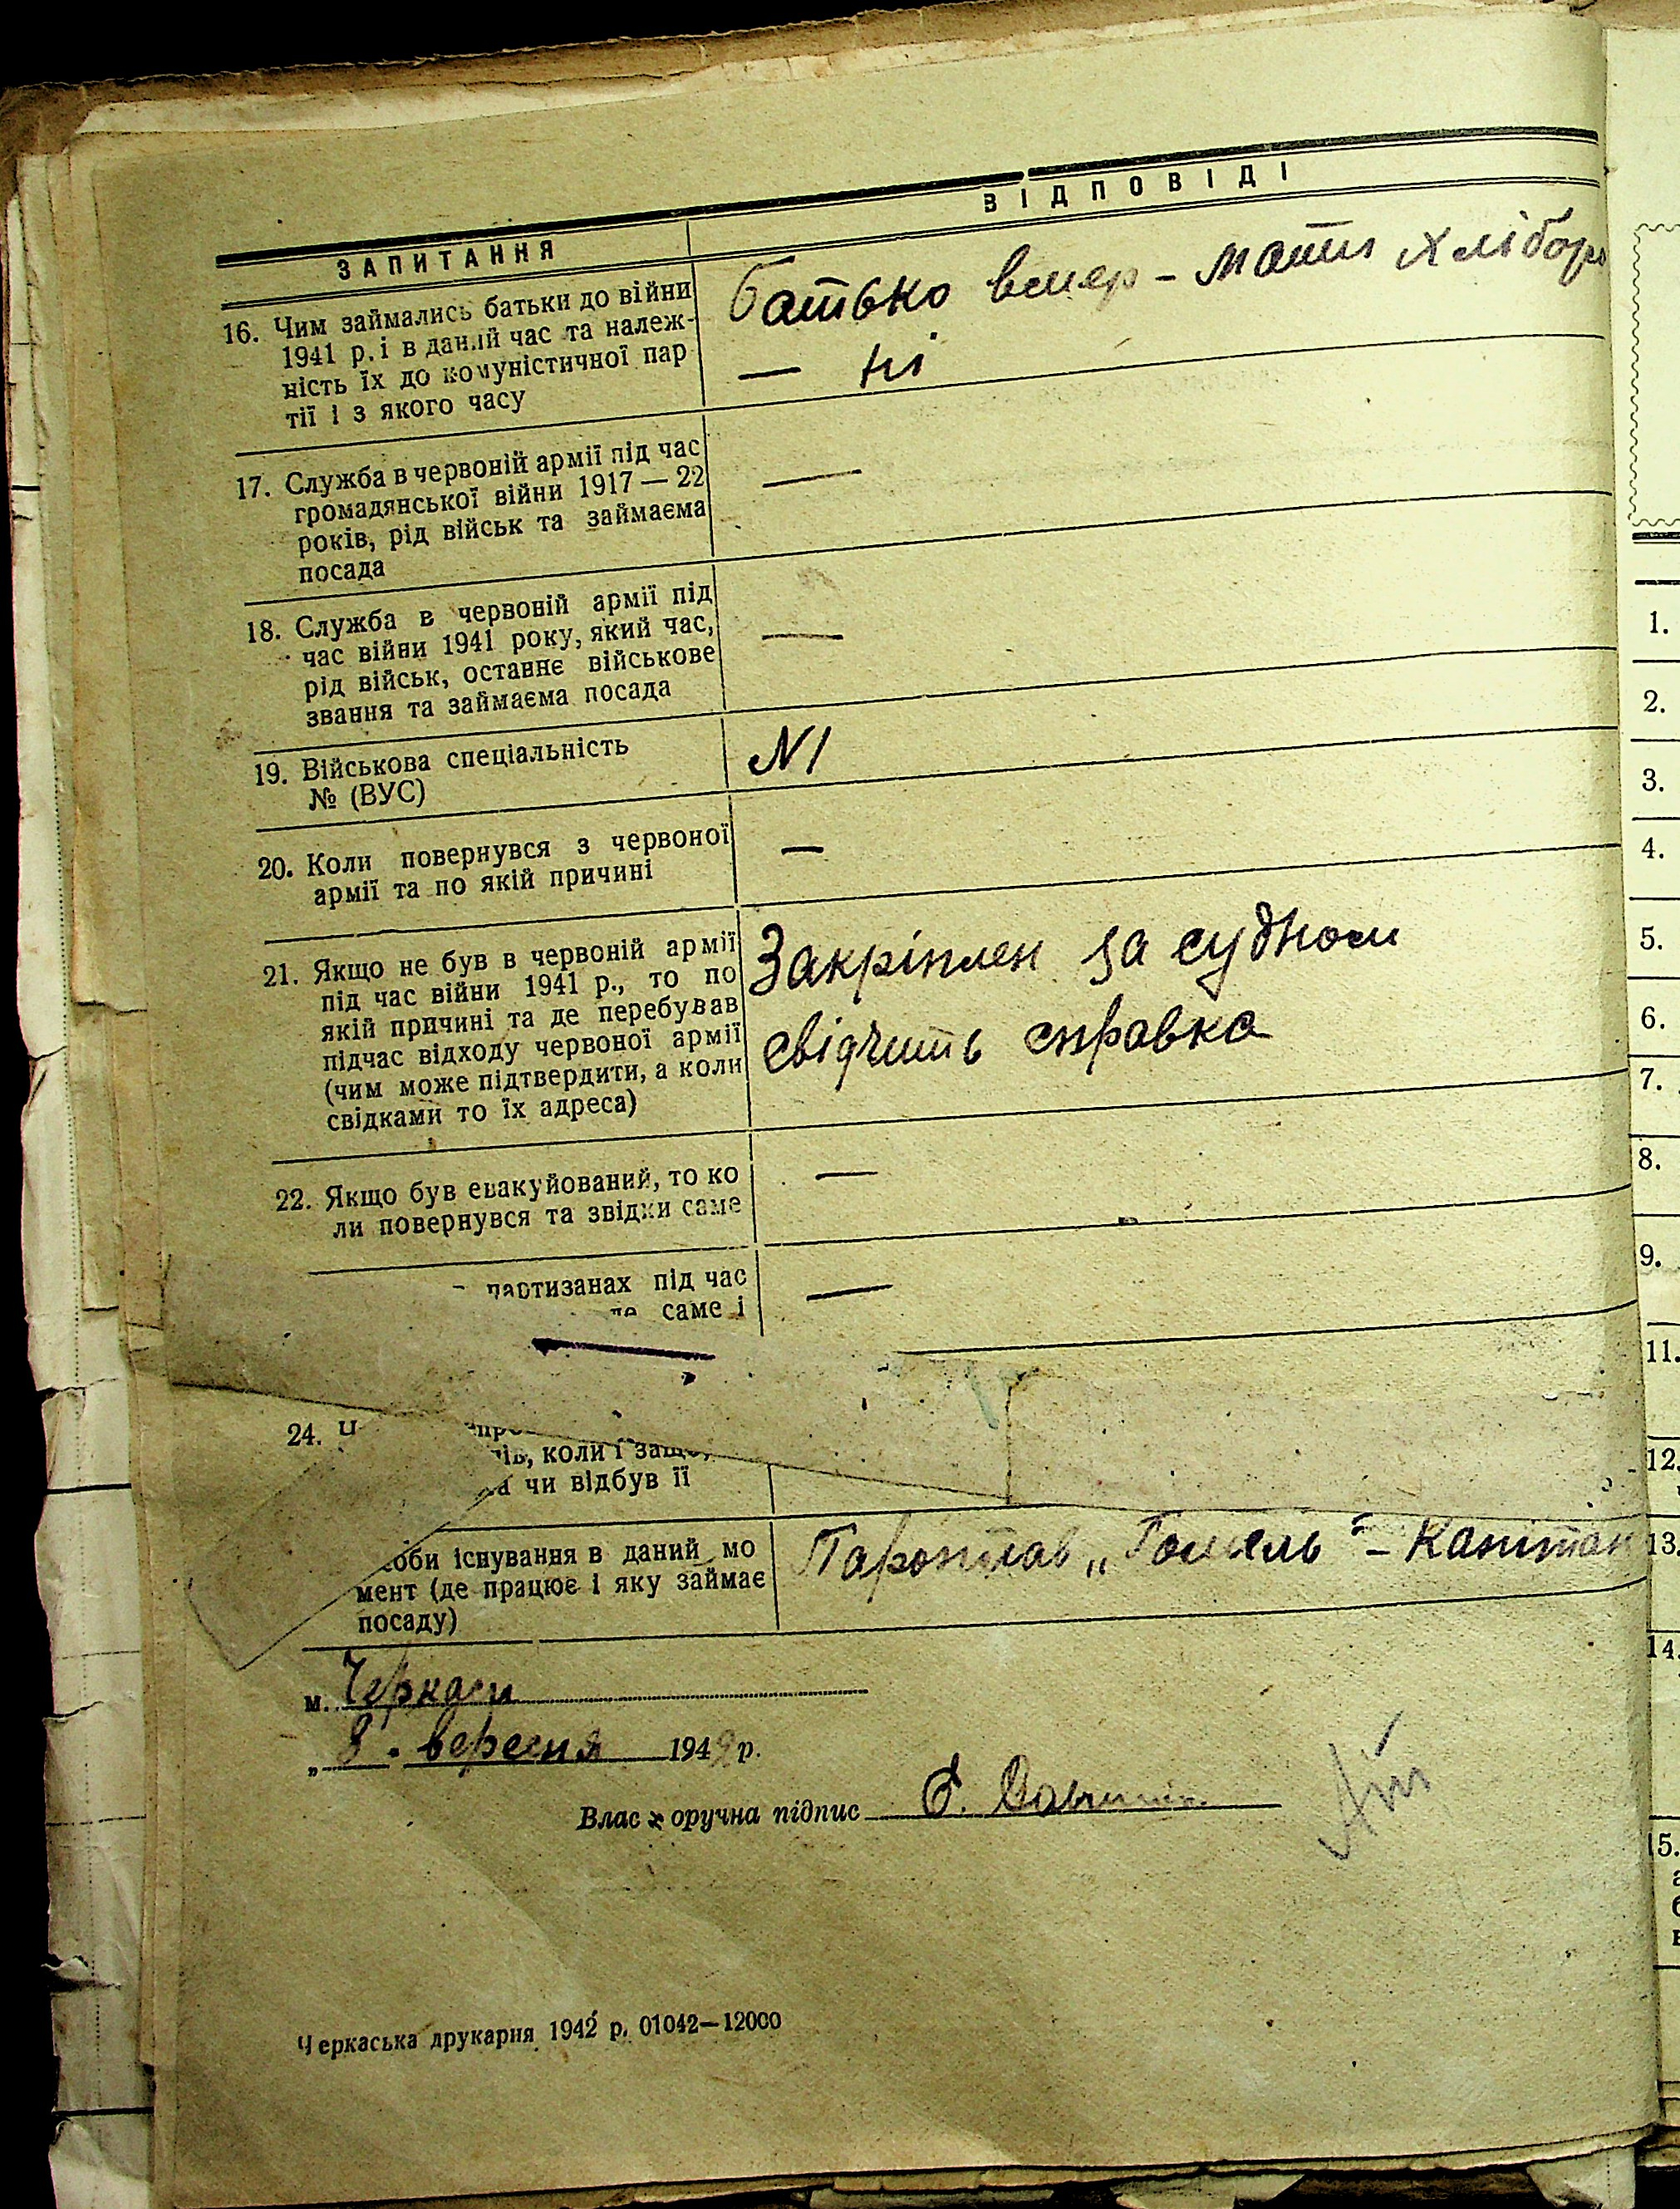 ЗАПИТАННЯ
ВІДПОВІДІ
16. Чим займались батьки до війни
1941 р. і в даний час та належ-
ність їх до комуністичної пар
тії і з якого часу
Батько вмер - мати хлібор
— ні
17. Служба в червоній армії під час
громадянської війни 1917 — 22
років, рід військ та займаєма
посада
—
18. Служба в червоній армії під
час війни 1941 року, який час,
рід військ, останнє військове
звання та займаєма посада
—
19. Військова спеціальність
№ (ВУС)
N1
20. Коли повернувся з червоної
армії та по якій причині
—
21. Якщо не був в червоній армії
під час війни 1941 р., то по
якій причині та де перебував
підчас відходу червоної армії
(чим може підтвердити, а коли
свідками то їх адреса)
Закріплен за судном
свідчить справка
22. Якщо був евакуйований, то ко
ли повернувся та звідки саме
—
партизанах під час
саме і
—
24.
коли і защо,
чи відбув її
оби існування в даний мо
мент (де працює і яку займає
посаду)
Пароплав „Гомель" - Капітан
м. Черкаси
„8" вересня 194 р.
Влас оручна підпис
Черкаська друкарня 1942 р. 01042—12000
1.
2.
3.
4.
5.
6.
7.
8.
9.
11.
12.
13.
14.
15.